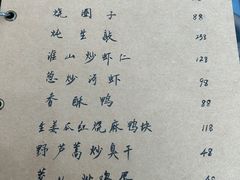 烧圈子 88
炖生敲 253
淮山炒虾仁 128
葱炒河虾 98
香酥鸭 88
生姜瓜红烧麻鸭块 118
野芦蒿炒臭干 48
48